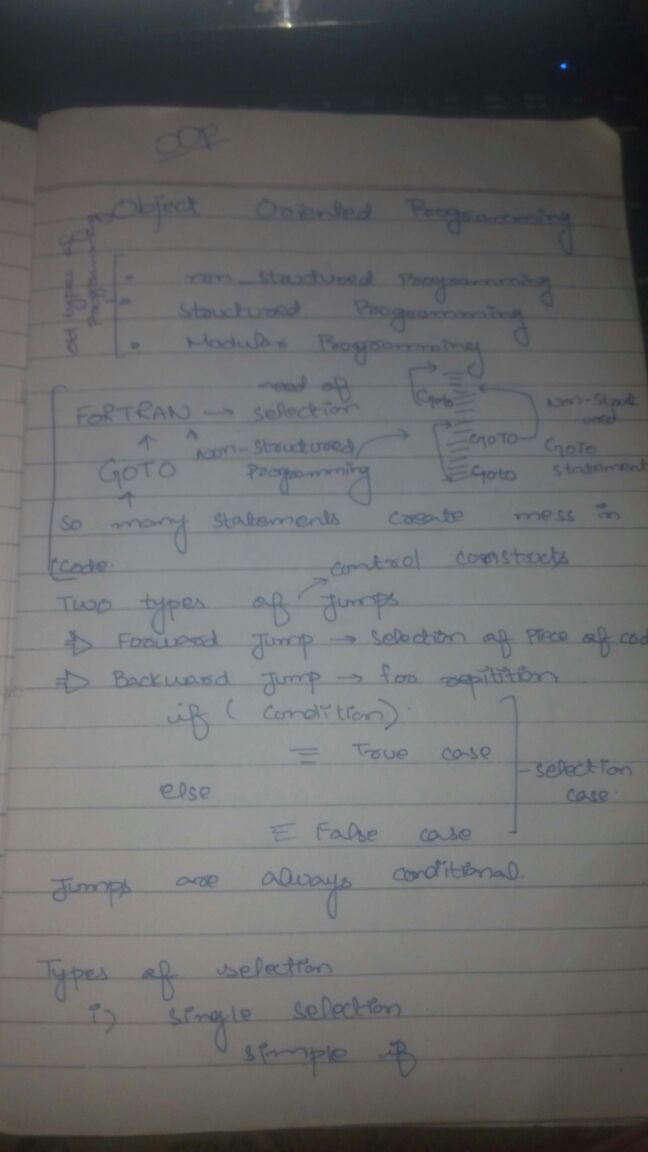 OOP
Object Oriented Programming
old types of Programming
non-structured Programming
Structured Programming
Modular Programming
FORTRAN → need of selection
GOTO
Non-Structured Programming
Goto
GOTO
Goto
Non-Structured
GOTO statement
So many statements create mess in
code.
control constructs
Two types of Jumps
⇒ Forward Jump → selection of Piece of cod
⇒ Backward Jump → for repitition
if ( condition)
= True case
else
≡ False case
selection case.
Jumps are always conditional.
Types of selection
i) single selection
simple if